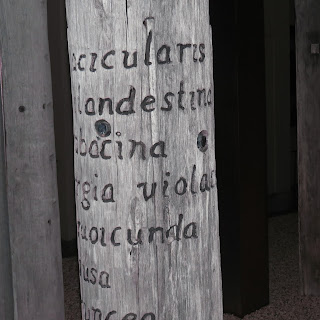 cicularis
landestina
bacina
rgia violac
icunda
usa